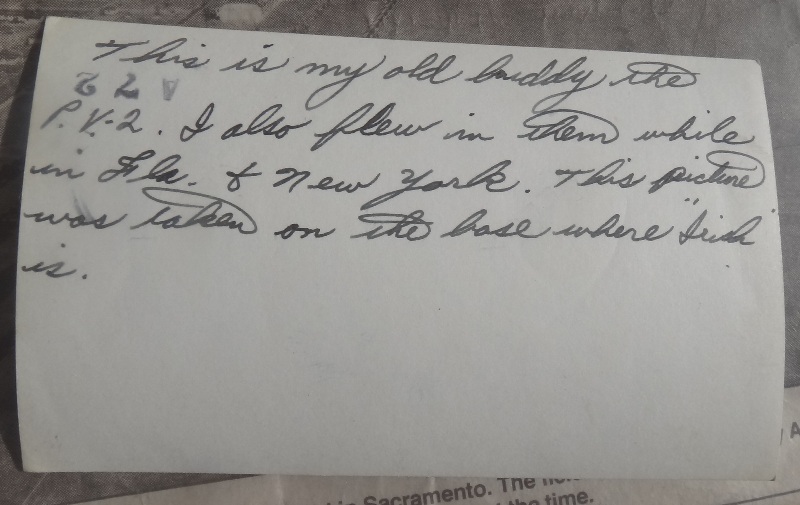 This is my old buddy the
P.V.-2. I also flew in them while
in Fla. & New York. This picture
was taken on the base where "Irish"
is.
in Sacramento. The
the time.